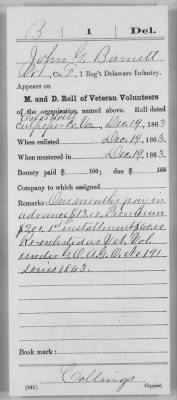 B | 1 | Del.
John G. Barnett
, Co. , 1 Reg't Delaware Infantry.
Appears on
M. and D. Roll of Veteran Volunteers
of the organization named above. Roll dated
Culpeper Co. Va. Dec 19, 1863
When enlisted Dec 19, 1863.
When mustered in Dec 19, 1863.
Bounty paid $ 100; due $ 100
Company to which assigned
Remarks: One month's pay in
advance $13.00. Premium
$2.00. 1st installment $60.00
Re-enlisted as Vet. Vol.
under G.O.A.G.O. No 191
series 1863.
Book mark:
Collings
(841) Copyist.